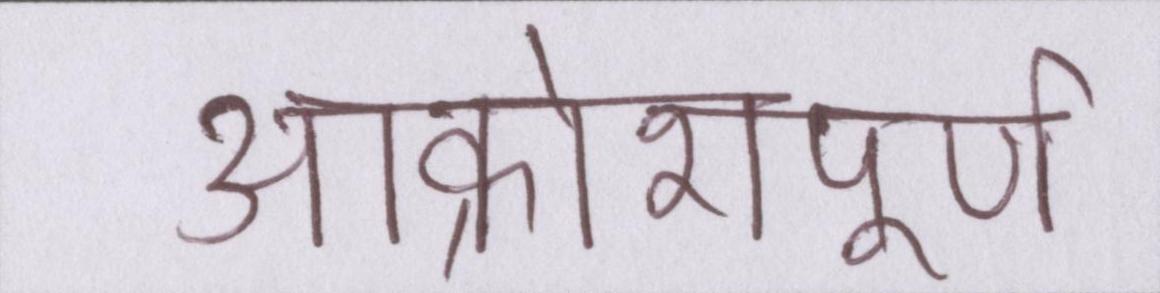 आक्रोशपूर्ण